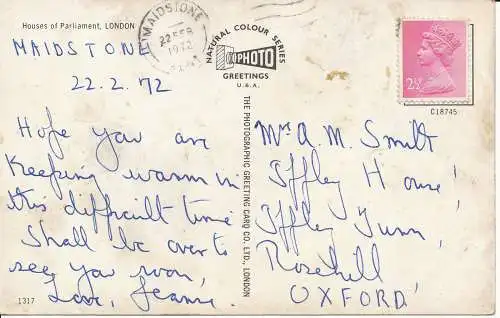 Houses of Parliament, LONDON
MAIDSTONE
22.2.72
Hope you are
Keeping warm in
this difficult time
Shall be over to
see you soon,
Love, Jeanie.
1317
MAIDSTONE
22 FEB
1972
NATURAL COLOUR SERIES
PHOTO
GREETINGS
U.S.A.
THE PHOTOGRAPHIC GREETING CARD CO. LTD., LONDON
2½
C18745
Mrs A. M. Smith
Iffley House,
Iffley Turn,
Rosehill
OXFORD